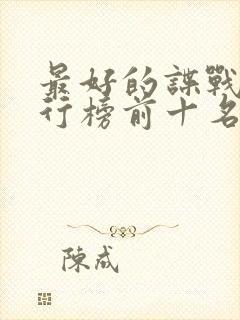 最好的諜戰
行榜前十名
陳咸